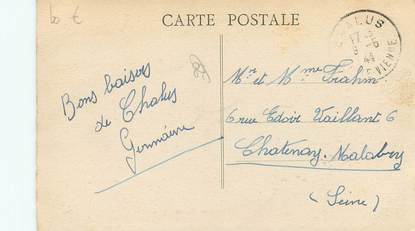 CARTE POSTALE
CHALUS
17
44
VIENNE
Bons baisers
de Chalus
Germaine
Mr et Mme Frahm
6 rue Edoir Vaillant 6
Chatenay-Malabry
(Seine)